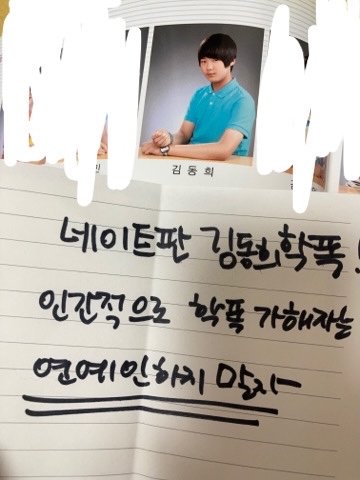 김동희
네이트판 김동희학폭!
인간적으로 학폭 가해자는
연예인하지 말자